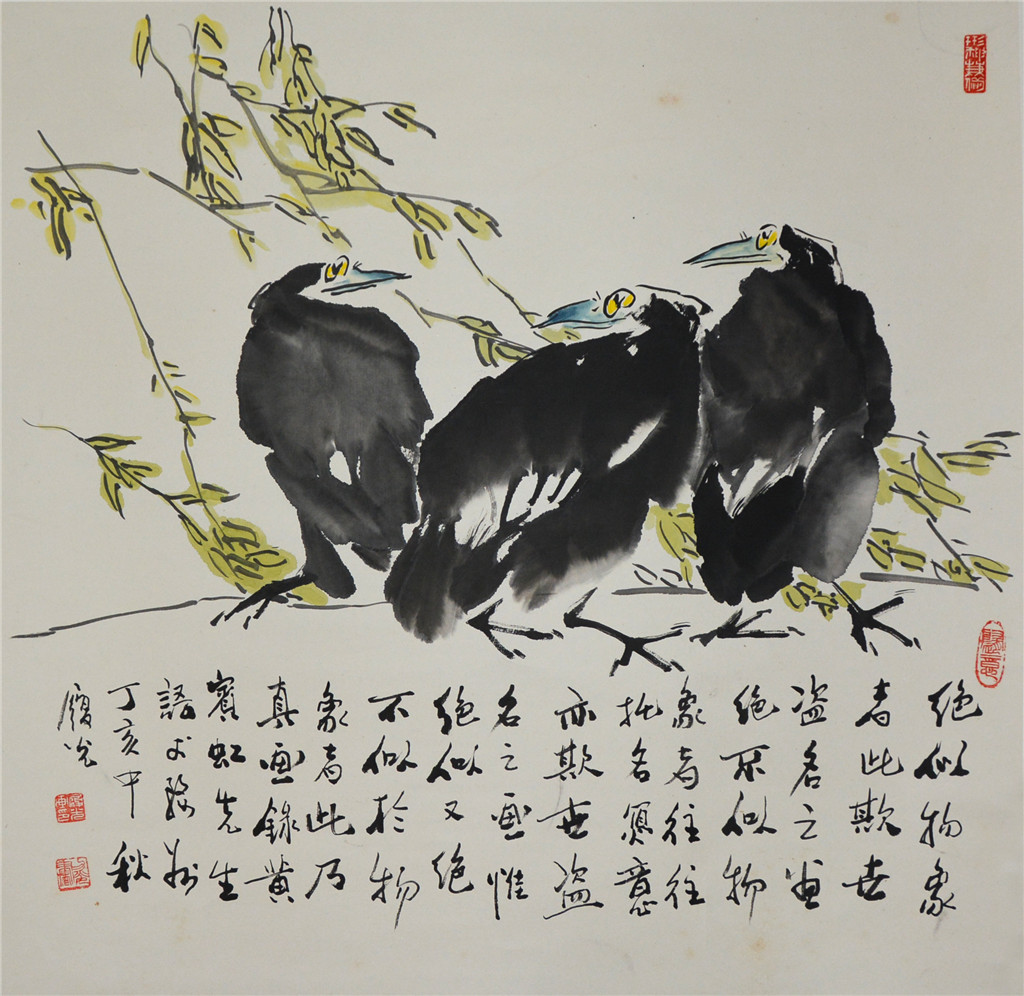 绝似物象
者此欺世
盗名之画
绝不似物
象者往往
托名寫意
亦欺世盗
名之画惟
绝似又绝
不似於物
象者此乃
真画錄黄
賓虹先生
語
丁亥中秋